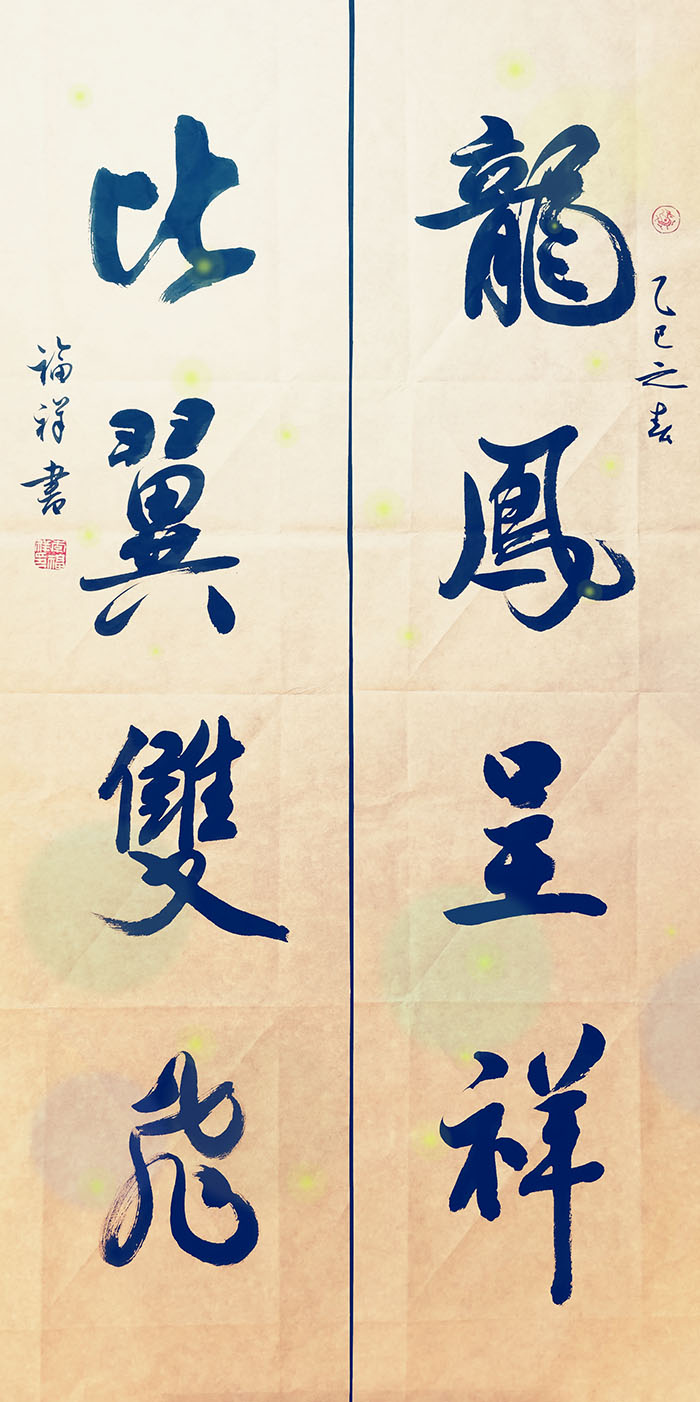 龍鳳呈祥
乙巳之春
比翼雙飛
福祥書